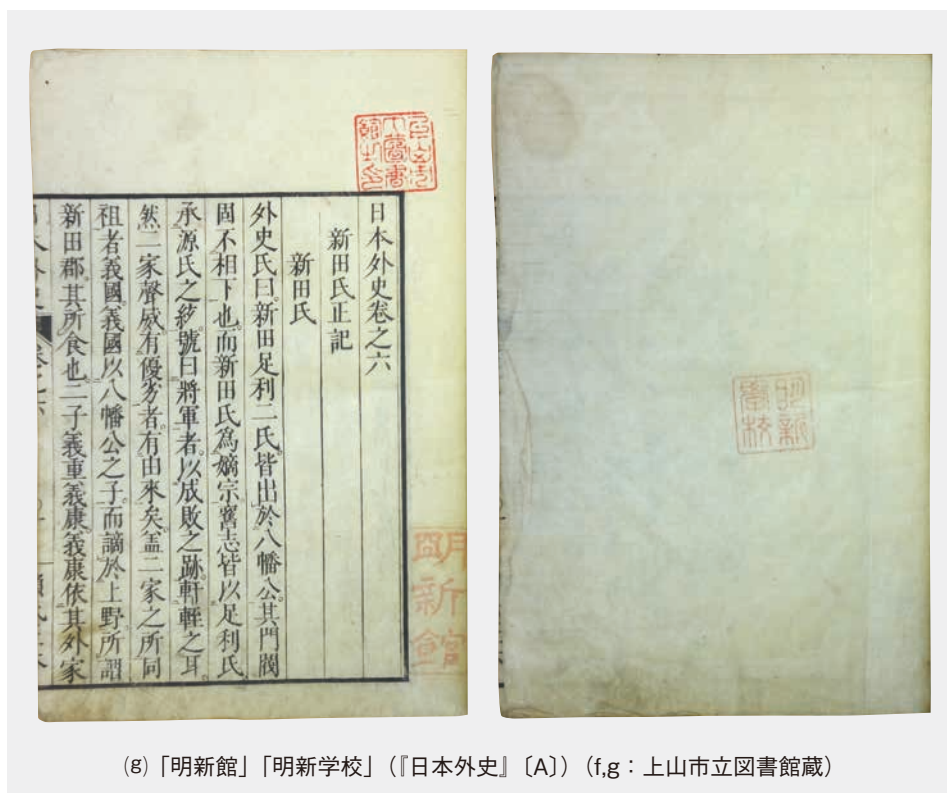 日本外史卷之六
新田氏正記
新田氏
外史氏曰。新田足利二氏。皆出於八幡公。其門閥
固不相下也。而新田氏為嫡宗。舊志皆以足利氏
承源氏之統。號曰將軍者。以成敗之跡。軒輊之耳。
然二家聲威。有優劣者。有由來矣。蓋二家之所同
祖者義國。義國以八幡公之子。而謫於上野。所謂
新田郡。其所食也。二子義重義康。義康依其外家
明新館
明新
學校
(g)「明新館」「明新学校」(『日本外史』〔A〕)(f,g：上山市立図書館蔵)